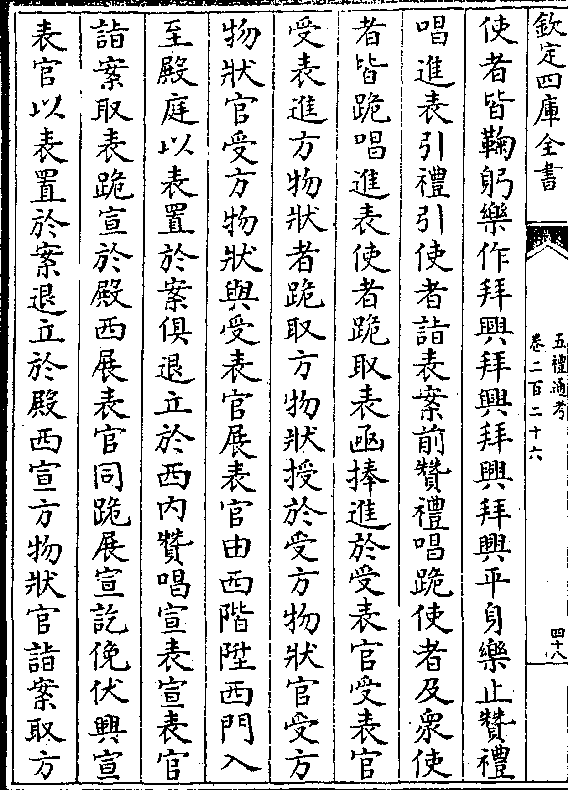 欽定四庫全書
五禮通考
卷二百二十六
四十八
使者皆鞠躬樂作拜興拜興拜興拜興平身樂止贊禮
唱進表引禮引使者詣表案前贊禮唱跪使者及衆使
者皆跪唱進表使者跪取表函捧進於受表官受表官
受表進方物狀者跪取方物狀授於受方物狀官受方
物狀官受方物狀與受表官展表官由西階陞西門入
至殿庭以表置於案俱退立於西内贊唱宣表宣表官
詣案取表跪宣於殿西展表官同跪展宣訖俛伏興宣
表官以表置於案退立於殿西宣方物狀官詣案取方